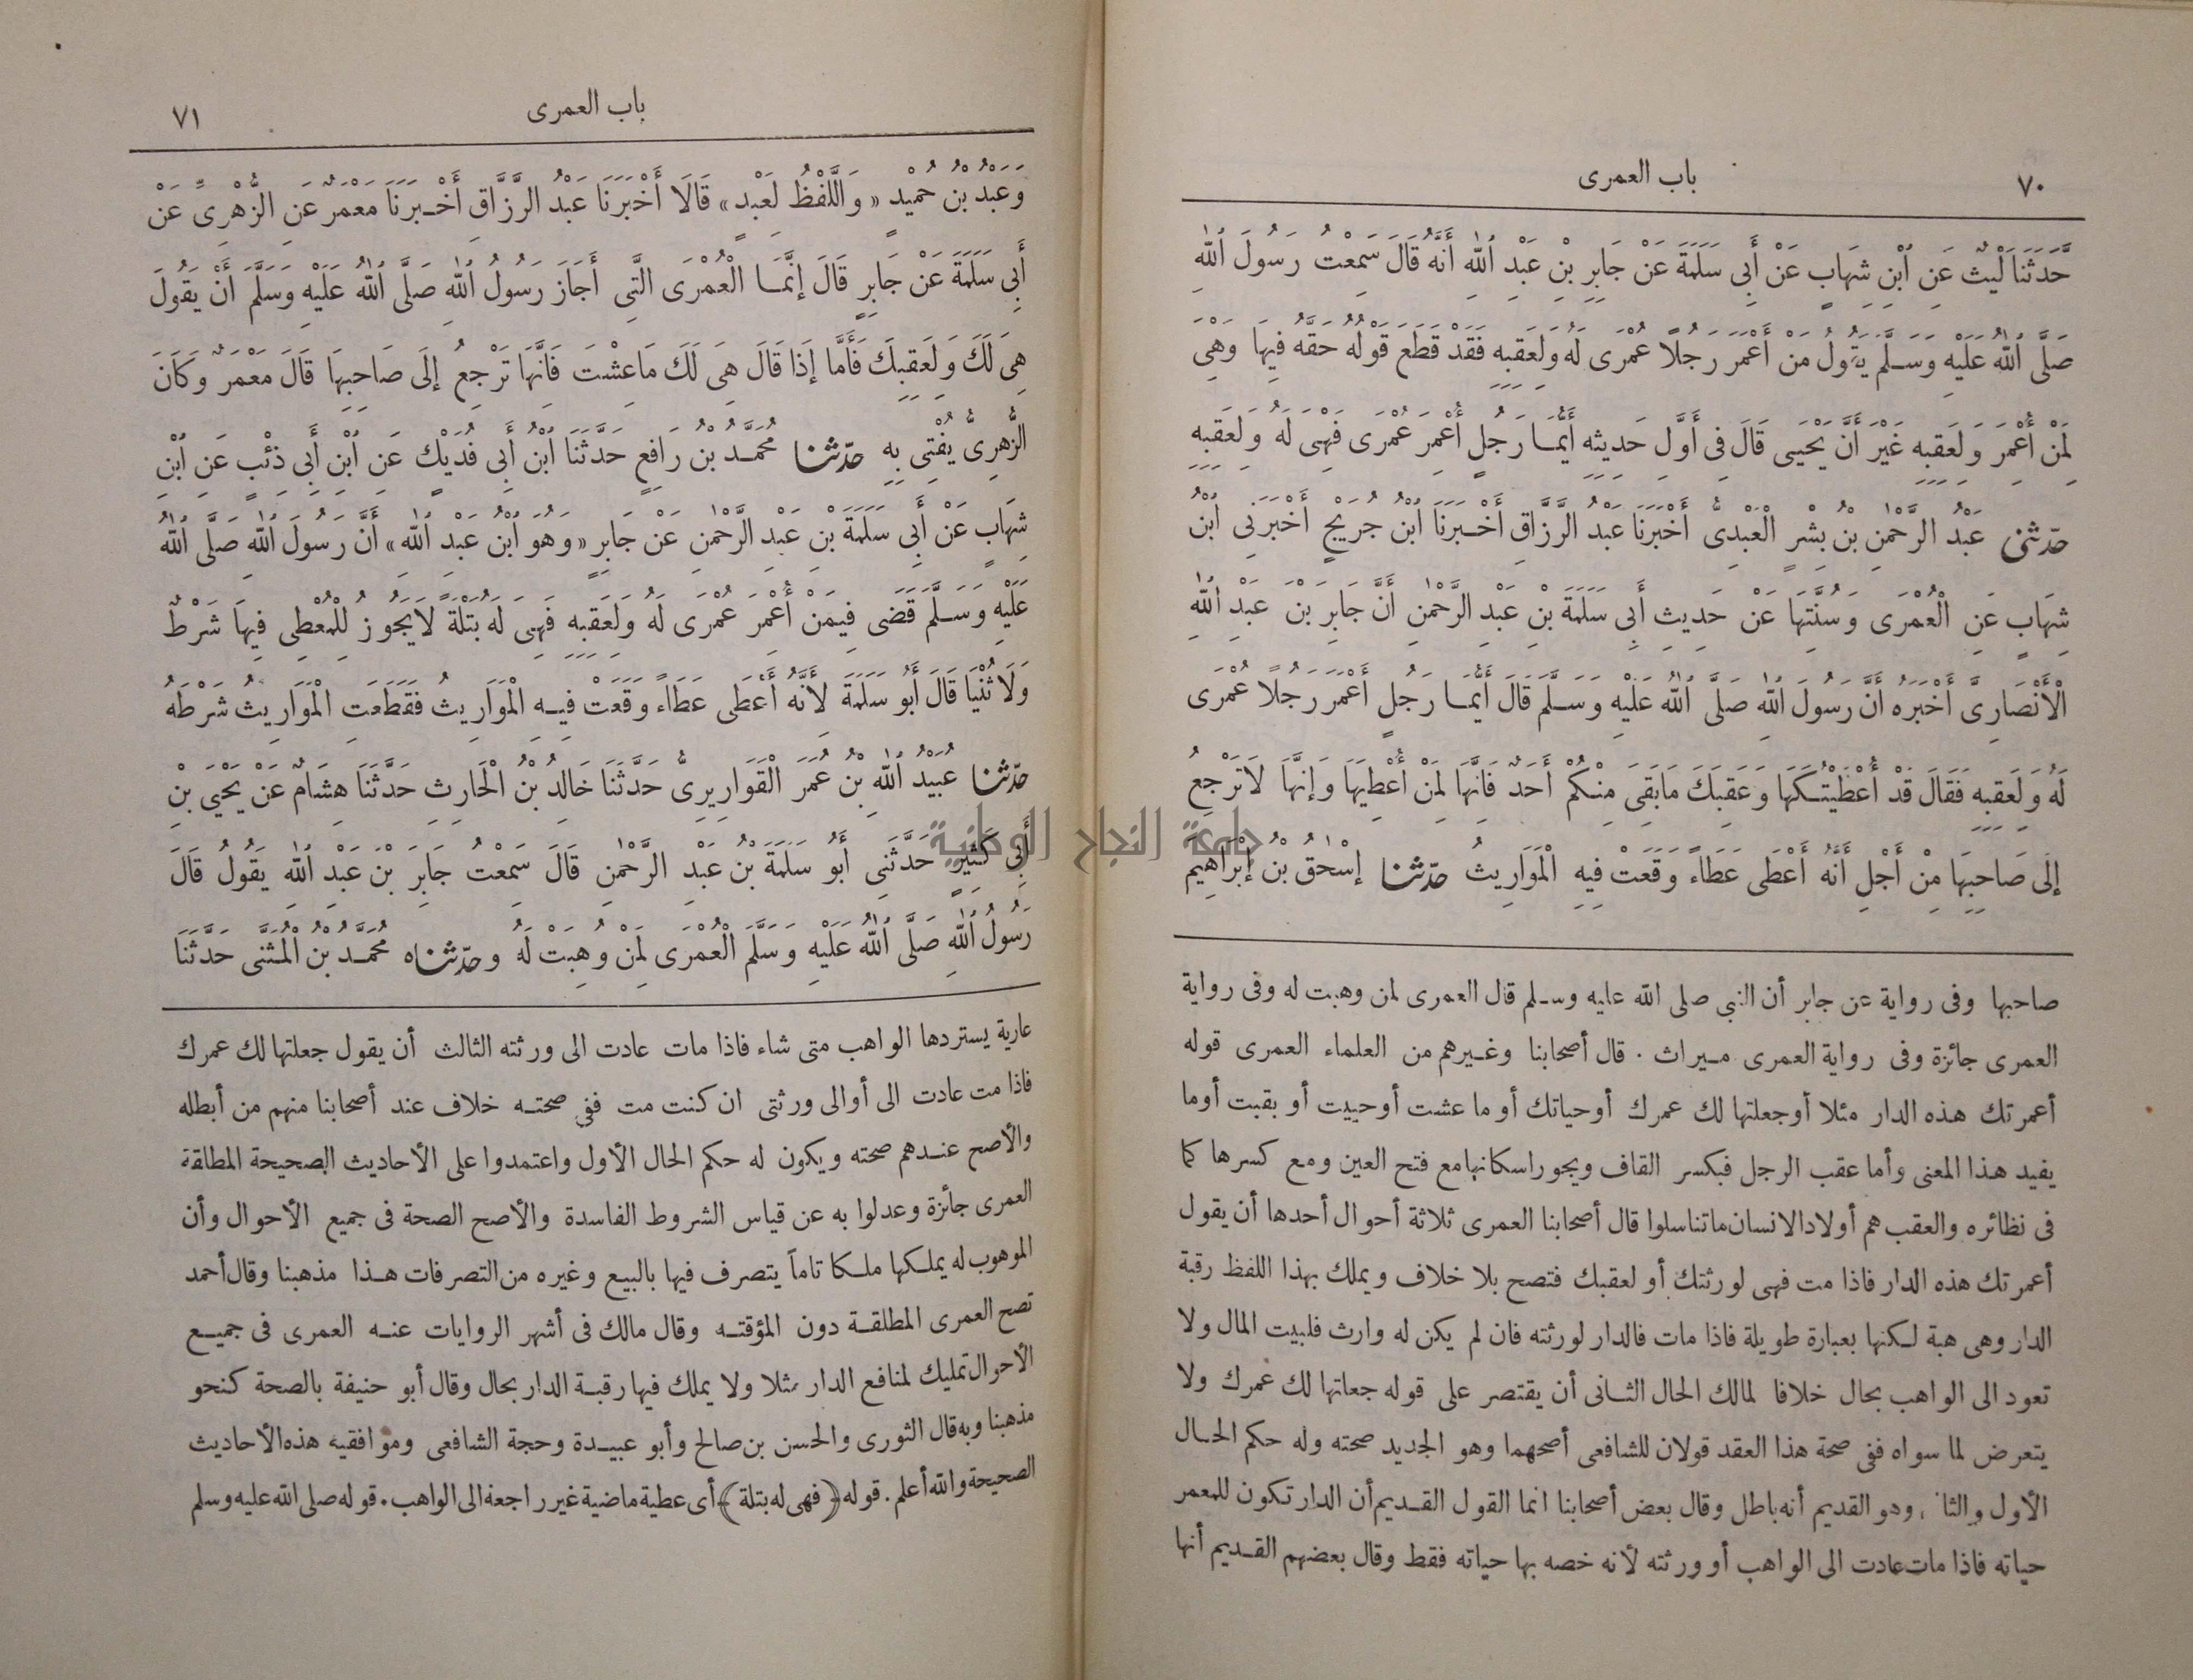 باب العمرى ٧٠
حَدَّثَنَا لَيْثٌ عَنِ ابْنِ شِهَابٍ عَنْ أَبِي سَلَمَةَ عَنْ جَابِرِ بْنِ عَبْدِ اللهِ أَنَّهُ قَالَ سَمِعْتُ رَسُولَ اللهِ
صَلَّى اللهُ عَلَيْهِ وَسَلَّمَ يَقُولُ مَنْ أَعْمَرَ رَجُلًا عُمْرَى لَهُ وَلِعَقِبِهِ فَقَدْ قَطَعَ قَوْلُهُ حَقَّهُ فِيهَا وَهْيَ
لِمَنْ أُعْمِرَ وَلِعَقِبِهِ غَيْرَ أَنَّ يَحْيَى قَالَ فِى أَوَّلِ حَدِيثِهِ أَيُّمَا رَجُلٍ أُعْمِرَ عُمْرَى فَهْىَ لَهُ وَلِعَقِبِهِ
حدّثنى عَبْدُ الرَّحْمٰنِ بْنُ بِشْرٍ الْعَبْدِىُّ أَخْبَرَنَا عَبْدُ الرَّزَّاقِ أَخْبَرَنَا ابْنُ جُرَيْجٍ أَخْبَرَنِى ابْنُ
شِهَابٍ عَنِ الْعُمْرَى وَسُنَّتِهَا عَنْ حَدِيثِ أَبِى سَلَمَةَ بْنِ عَبْدِ الرَّحْمٰنِ أَنَّ جَابِرَ بْنَ عَبْدِ اللهِ
الْأَنْصَارِىَّ أَخْبَرَهُ أَنَّ رَسُولَ اللهِ صَلَّى اللهُ عَلَيْهِ وَسَلَّمَ قَالَ أَيُّمَا رَجُلٍ أَعْمَرَ رَجُلًا عُمْرَى
لَهُ وَلِعَقِبِهِ فَقَالَ قَدْ أَعْطَيْتُكَهَا وَعَقِبَكَ مَا بَقِىَ مِنْكُمْ أَحَدٌ فَإِنَّهَا لِمَنْ أُعْطِيَهَا وَإِنَّهَا لَا تَرْجِعُ
إِلَى صَاحِبِهَا مِنْ أَجْلِ أَنَّهُ أَعْطَى عَطَاءً وَقَعَتْ فِيهِ الْمَوَارِيثُ حدّثنا إِسْحٰقُ بْنُ إِبْرَاهِيمَ
صاحبها وفى رواية عن جابر أن النبى صلى الله عليه وسلم قال العمرى لمن وهبت له وفى رواية
العمرى جائزة وفى رواية العمرى ميراث . قال أصحابنا وغيرهم من العلماء العمرى قوله
أعمرتك هذه الدار مثلا أو جعلتها لك عمرك أو حياتك أو ما عشت أو حييت أو بقيت أو ما
يفيد هذا المعنى وأما عقب الرجل فبكسر القاف ويجوز اسكانها مع فتح العين ومع كسرها كما
فى نظائره والعقب هم أولاد الانسان ما تناسلوا قال أصحابنا العمرى ثلاثة أحوال أحدها أن يقول
أعمرتك هذه الدار فاذا مت فهى لورثتك أو لعقبك فتصح بلا خلاف ويملك بهذا اللفظ رقبة
الدار وهى هبة لكنها بعبارة طويلة فاذا مات فالدار لورثته فان لم يكن له وارث فلبيت المال ولا
تعود الى الواهب بحال خلافا لمالك الحال الثانى أن يقتصر على قوله جعلتها لك عمرك ولا
يتعرض لما سواه ففى صحة هذا العقد قولان للشافعى أصحهما وهو الجديد صحته وله حكم الحال
الأول وهو القديم أنه باطل وقال بعض أصحابنا انما القول القديم أن الدار تكون للمعمر
حياته فاذا مات عادت الى الواهب أو ورثته لأنه خصه بها حياته فقط وقال بعضهم القديم أنها
باب العمرى ٧١
وَعَبْدُ بْنُ حُمَيْدٍ «وَاللَّفْظُ لِعَبْدٍ» قَالَا أَخْبَرَنَا عَبْدُ الرَّزَّاقِ أَخْبَرَنَا مَعْمَرٌ عَنِ الزُّهْرِىِّ عَنْ
أَبِى سَلَمَةَ عَنْ جَابِرٍ قَالَ إِنَّمَا الْعُمْرَى الَّتِى أَجَازَ رَسُولُ اللهِ صَلَّى اللهُ عَلَيْهِ وَسَلَّمَ أَنْ يَقُولَ
هِىَ لَكَ وَلِعَقِبِكَ فَأَمَّا إِذَا قَالَ هِىَ لَكَ مَا عِشْتَ فَإِنَّهَا تَرْجِعُ إِلَى صَاحِبِهَا قَالَ مَعْمَرٌ وَكَانَ
الزُّهْرِىُّ يُفْتِى بِهِ حدّثنا مُحَمَّدُ بْنُ رَافِعٍ حَدَّثَنَا ابْنُ أَبِى فُدَيْكٍ عَنِ ابْنِ أَبِى ذِئْبٍ عَنِ ابْنِ
شِهَابٍ عَنْ أَبِى سَلَمَةَ بْنِ عَبْدِ الرَّحْمٰنِ عَنْ جَابِرٍ «وَهُوَ ابْنُ عَبْدِ اللهِ» أَنَّ رَسُولَ اللهِ صَلَّى اللهُ
عَلَيْهِ وَسَلَّمَ قَضَى فِيمَنْ أُعْمِرَ عُمْرَى لَهُ وَلِعَقِبِهِ فَهِىَ لَهُ بَتْلَةً لَا يَجُوزُ لِلْمُعْطِى فِيهَا شَرْطٌ
وَلَا ثُنْيَا قَالَ أَبُو سَلَمَةَ لِأَنَّهُ أَعْطَى عَطَاءً وَقَعَتْ فِيهِ الْمَوَارِيثُ فَقَطَعَتِ الْمَوَارِيثُ شَرْطَهُ
حدّثنا عُبَيْدُ اللهِ بْنُ عُمَرَ الْقَوَارِيرِىُّ حَدَّثَنَا خَالِدُ بْنُ الْحَارِثِ حَدَّثَنَا هِشَامٌ عَنْ يَحْيَى بْنِ
أَبِى كَثِيرٍ حَدَّثَنِى أَبُو سَلَمَةَ بْنُ عَبْدِ الرَّحْمٰنِ قَالَ سَمِعْتُ جَابِرَ بْنَ عَبْدِ اللهِ يَقُولُ قَالَ
رَسُولُ اللهِ صَلَّى اللهُ عَلَيْهِ وَسَلَّمَ الْعُمْرَى لِمَنْ وُهِبَتْ لَهُ وحدّثناه مُحَمَّدُ بْنُ الْمُثَنَّى حَدَّثَنَا
عارية يستردها الواهب متى شاء فاذا مات عادت الى ورثته الثالث أن يقول جعلتها لك عمرك
فاذا مت عادت الى أو الى ورثتى ان كنت مت ففى صحته خلاف عند أصحابنا منهم من أبطله
والأصح عندهم صحته ويكون له حكم الحال الأول واعتمدوا على الأحاديث الصحيحة المطلقة
العمرى جائزة وعدلوا به عن قياس الشروط الفاسدة والأصح الصحة فى جميع الأحوال وأن
الموهوب له يملكها ملكا تاماً يتصرف فيها بالبيع وغيره من التصرفات هذا مذهبنا وقال أحمد
تصح العمرى المطلقة دون المؤقته وقال مالك فى أشهر الروايات عنه العمرى فى جميع
الأحوال تمليك لمنافع الدار مثلا ولا يملك فيها رقبة الدار بحال وقال أبو حنيفة بالصحة كنحو
مذهبنا وبه قال الثورى والحسن بن صالح وأبو عبيدة وحجة الشافعى وموافقيه هذه الأحاديث
الصحيحة والله أعلم . قوله ﴿فهى له بتلة﴾ أى عطية ماضية غير راجعة الى الواهب . قوله صلى الله عليه وسلم
جامعة النجاح الوطنية